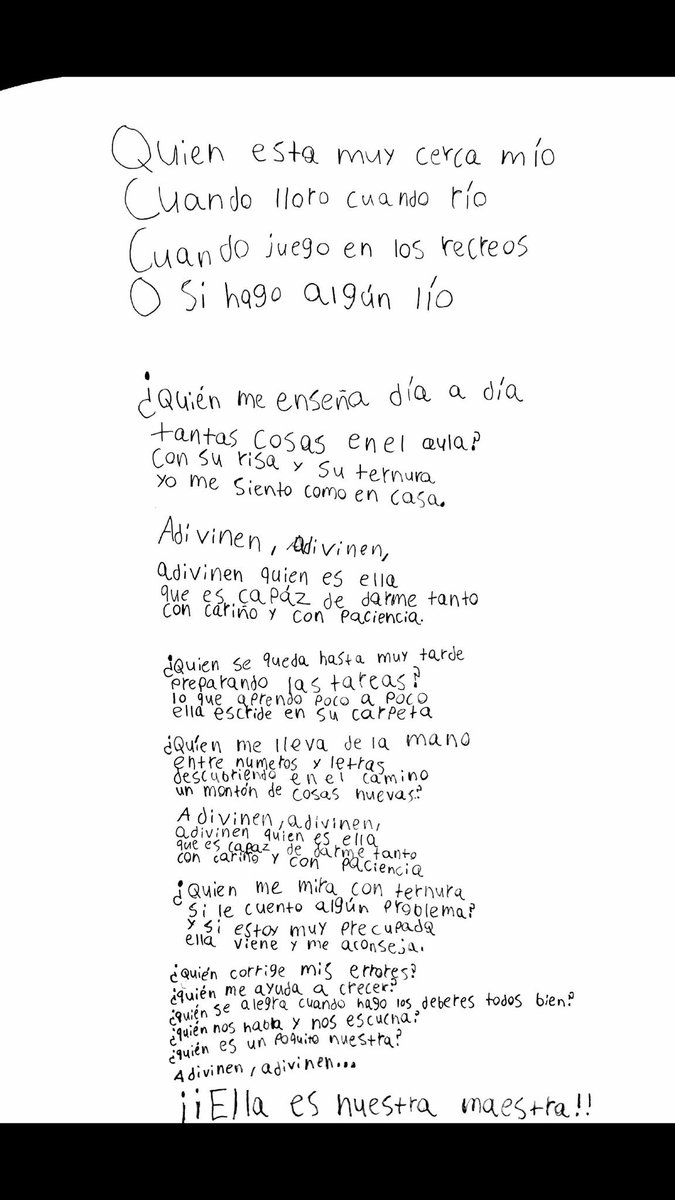 Quien esta muy cerca mío
Cuando lloro cuando río
Cuando juego en los recreos
O si hago algún lío
¿Quién me enseña día a día
tantas cosas en el aula?
con su risa y su ternura
yo me siento como en casa.
Adivinen, adivinen,
adivinen quien es ella
que es capáz de darme tanto
con cariño y con paciencia.
¿Quien se queda hasta muy tarde
preparando las tareas?
lo que aprendo poco a poco
ella escride en su carpeta
¿Quien me lleva de la mano
entre numeros y letras
descubriendo en el camino
un montón de cosas nuevas?
Adivinen, adivinen,
adivinen quien es ella
que es capaz de darme tanto
con cariño y con paciencia
¿Quien me mira con ternura
si le cuento algún problema?
y si estoy muy precupada
ella viene y me aconseja.
¿quién corrige mis errores?
¿quién me ayuda a crecer?
¿quién se alegra cuando hago los deberes todos bien?
¿quién nos habla y nos escucha?
¿quién es un poquito nuestra?
Adivinen, adivinen...
¡¡Ella es nuestra maestra!!